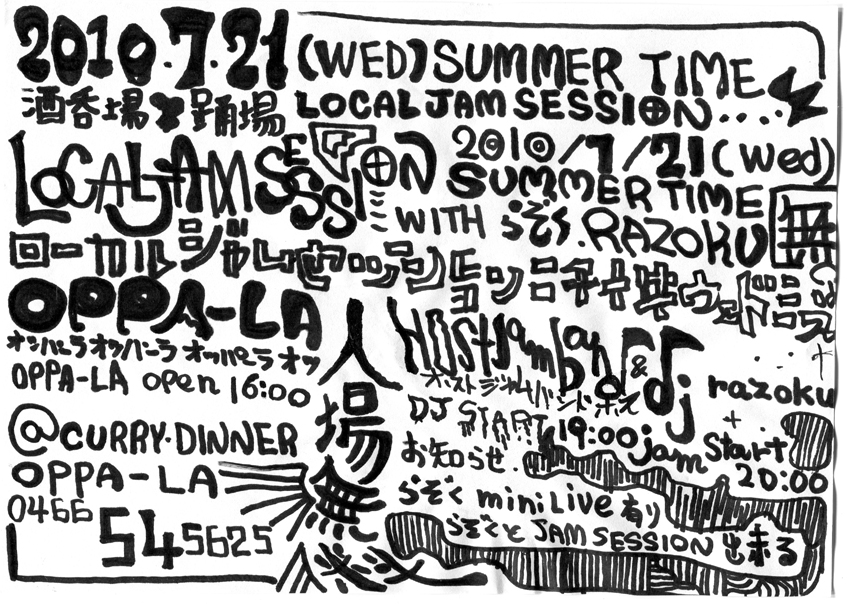 2010.7.21 (WED) SUMMER TIME
酒呑場 踊場 LOCAL JAM SESSION....
LOCAL JAM SESSION 2010/7/21 (Wed)
SUMMER TIME
WITH らぞく. RAZOKU
ローカルジャムセッション
OPPA-LA
オッパーラ オッパーラ オッパーラ オッ
OPPA-LA open 16:00
@CURRY・DINNER
OPPA-LA
0466
545625
入場無
HOST Jam band & dj razoku
DJ START 19:00 jam Start
20:00
お知らせ.
らぞく mini Live 有り
らぞくと JAM SESSION 出来る